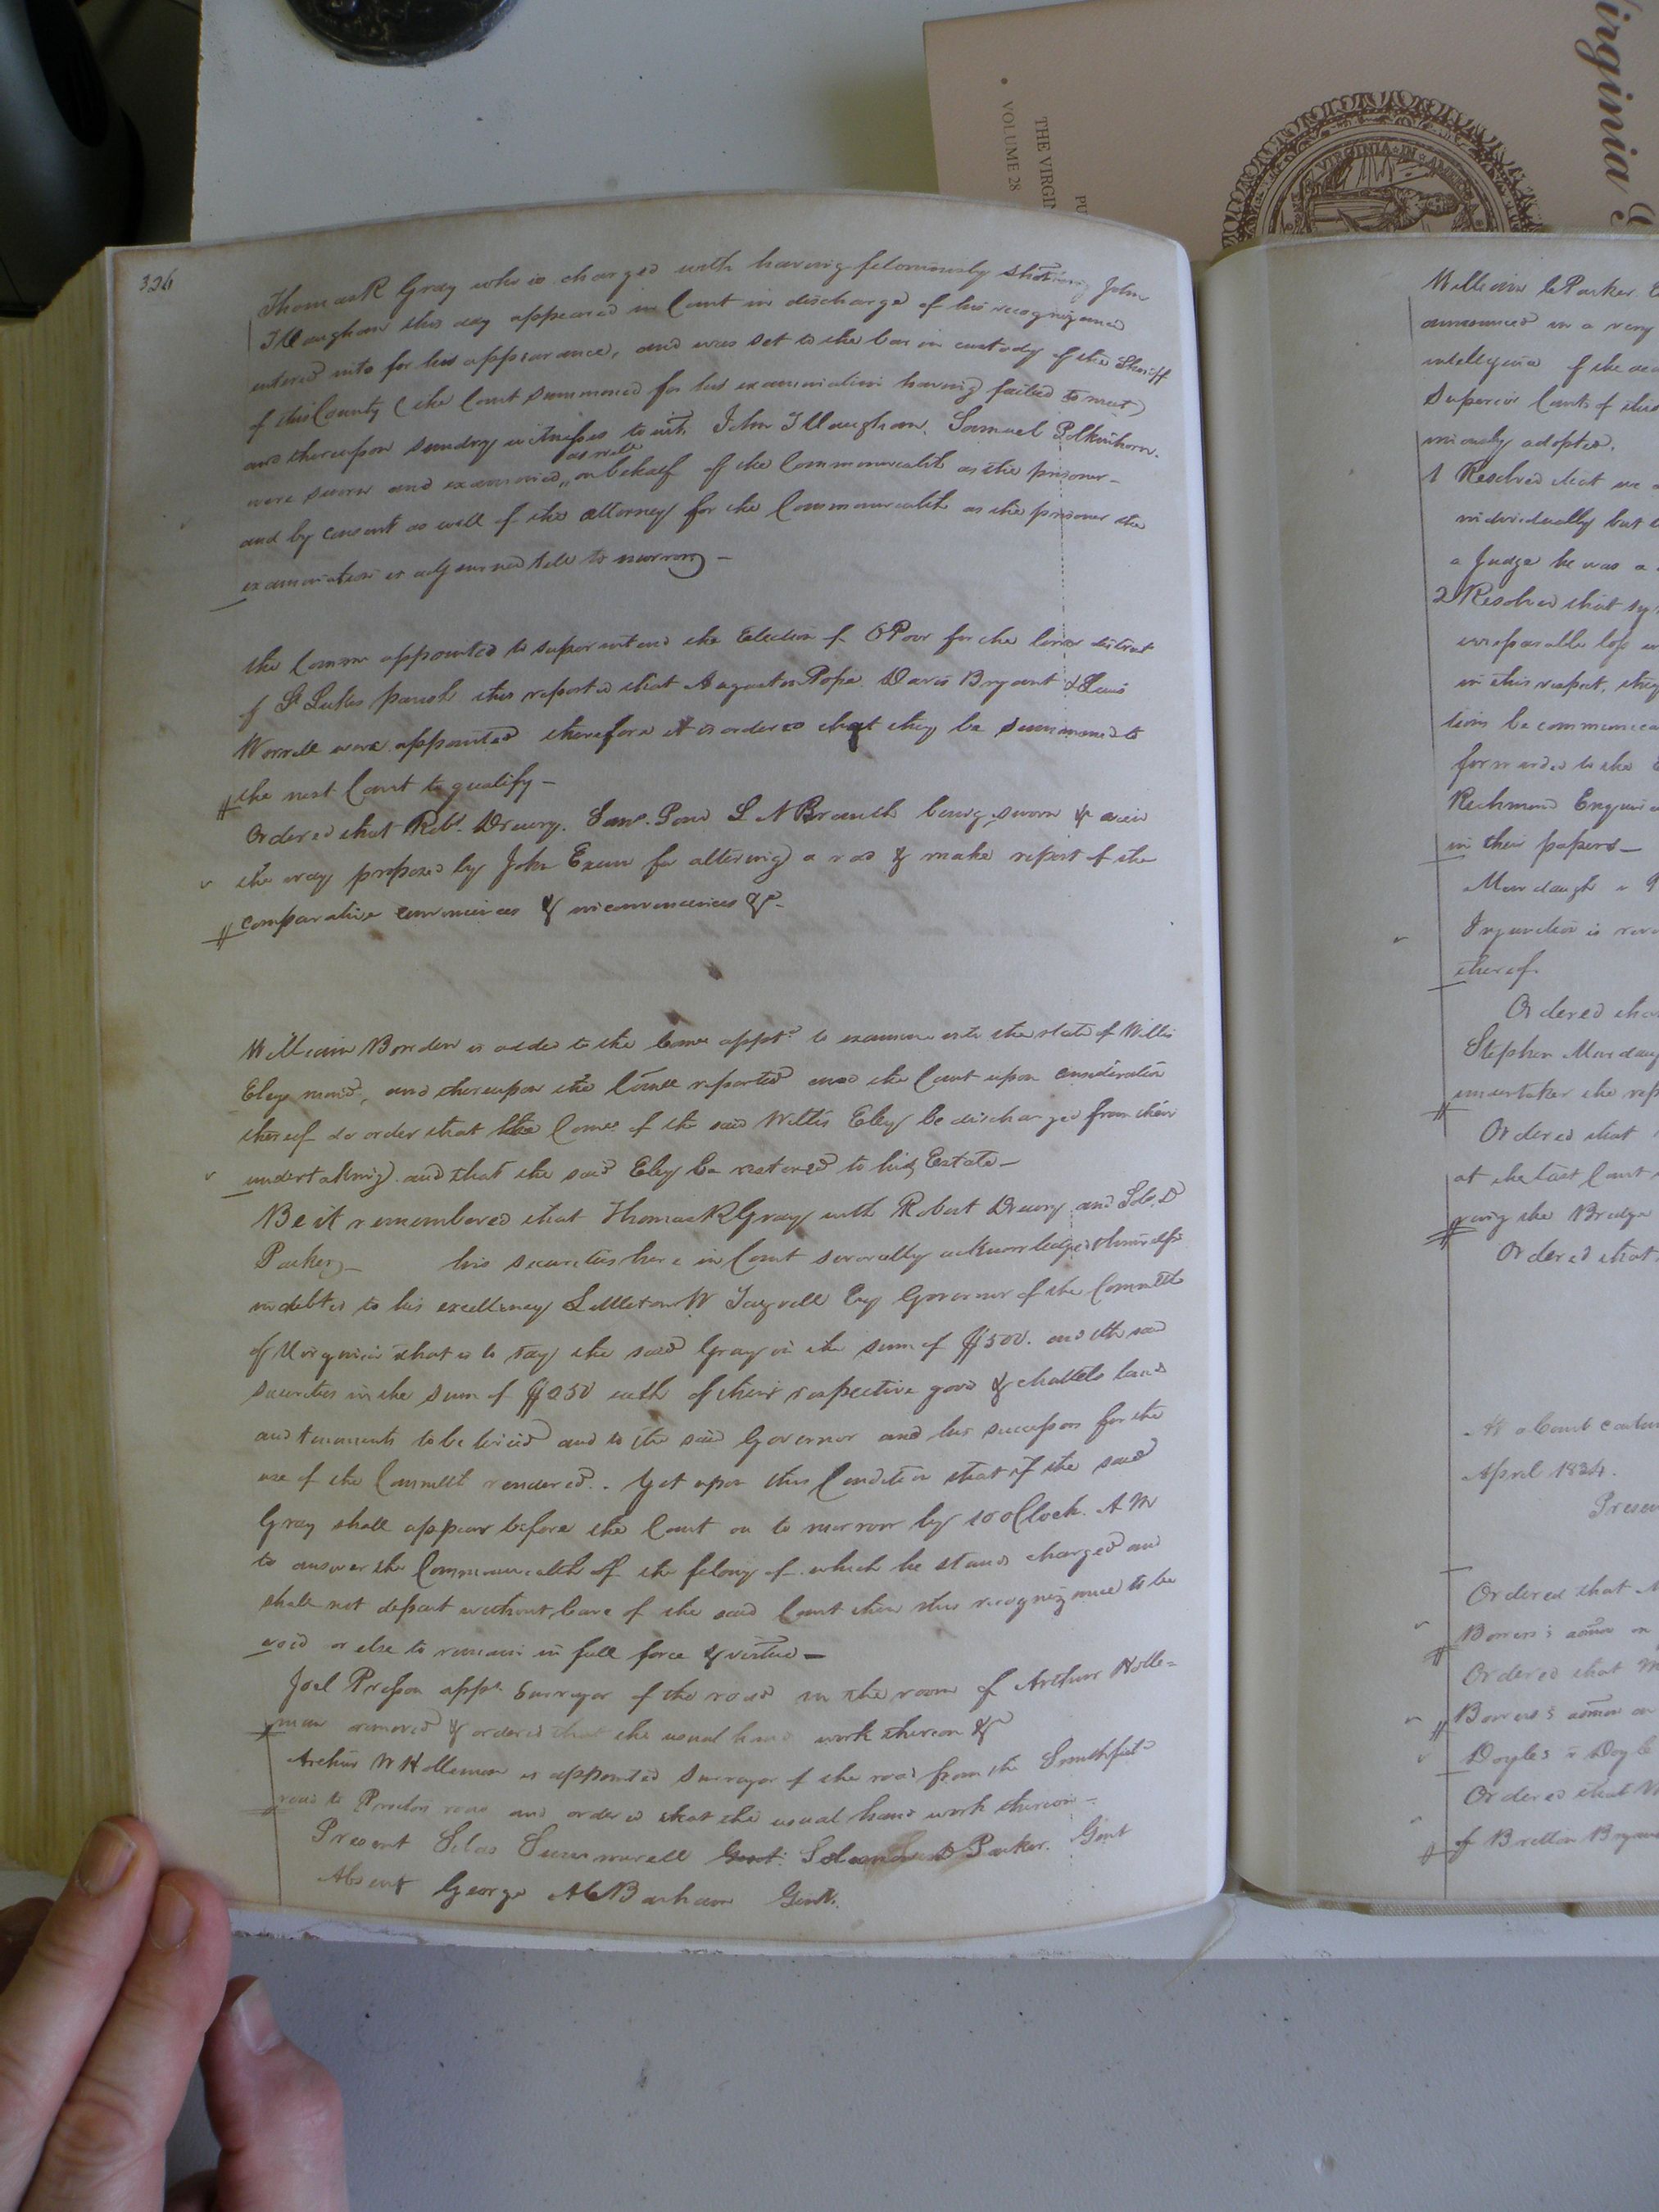 Virginia
THE VIRGIN
VOLUME 28
PU
VIRGINIA IN
326
Thomas R Gray who is charged with having feloniously shooting John
T Vaughan this day appeared in Court in discharge of his recognizance
entered into for his appearance, and was set to the bar in custody of the Sheriff
of this County (the Court summoned for his examination having failed to meet)
and thereupon sundry witnesses to wit John T Vaughan, Samuel Polkinhorn.
were sworn and examined, as well on behalf of the Commonwealth as the prisoner-
and by consent as well of the attorney for the Commonwealth as the prisoner the
examination is adjourned till to morrow -
the Comrs appointed to superintend the Election of O Poor for the lower district
of St Lukes parish this reported that Augustin Pope. Davis Bryant & Lewis
Worrell were appointed therefore it is ordered that they be summoned to
the next Court to qualify -
Ordered that Robt. Drewry. Saml. Pond L N Branch being sworn & view
the way proposed by John Exum for altering a road & make report of the
comparative conveniences & inconveniences &c-
William Borden is added to the Comee appt.d to examine into the state of Willis
Eley mind, and thereupon the Comee reported and the Court upon consideration
thereof do order that the Comee of the said Willis Eley be discharged from their
undertaking and that the said Eley be restored to his Estate -
Be it remembered that Thomas R Gray with Robert Drewry and Sol. D
Parker - his securities here in Court severally acknowledged themselves
indebted to his excellency Littleton W Tazwell Esq Governor of the Commlth
of Virginia that is to say the said Gray in the sum of $500. and the said
securities in the sum of $250 each of their respective good & chattels land
and tenements to be levied and to the said Governor and his successors for the
use of the Commlth rendered.. Yet upon this Condition that if the said
Gray shall appear before the Court on to morrow by 10 oClock. A M
to answer the Commonwealth of the felony of which he stands charged and
shall not depart without leave of the said Court then this recognizance to be
void or else to remain in full force & virtue -
Joel Presson appt. Surveyor of the road in the room of Arthur Holle=
man removed & ordered that the usual hand work thereon &
Arthur W Holleman is appointed Surveyor of the road from the Smithfield
road to Proctors road and ordered that the usual hand work thereon -
Present Silas Summerell Gent. Solomon D Parker. Gent
Absent George A W Barham Gent.
William C Parker E
announced in a very
intelligence of the dea
Superior Courts of this
imously adopted.
1 Resolved that we
individually but
a Judge he was a
2 Resolved that by
irreparable loss
in this respect, they
tions be communica
forwarded to the E
Richmond Enquirer
in their papers -
Murdaugh v
Injunction is
thereof.
Ordered tha
Stephen Murdaug
undertaker the rep
Ordered that
at the last Court
ring the Bridge
Ordered that
At a Court contin
April 1834.
Presen
Ordered that
Bowers's admr on
Ordered that
Bowers's admr on
Doyles v Doyle
Ordered that
of Britton Bryan